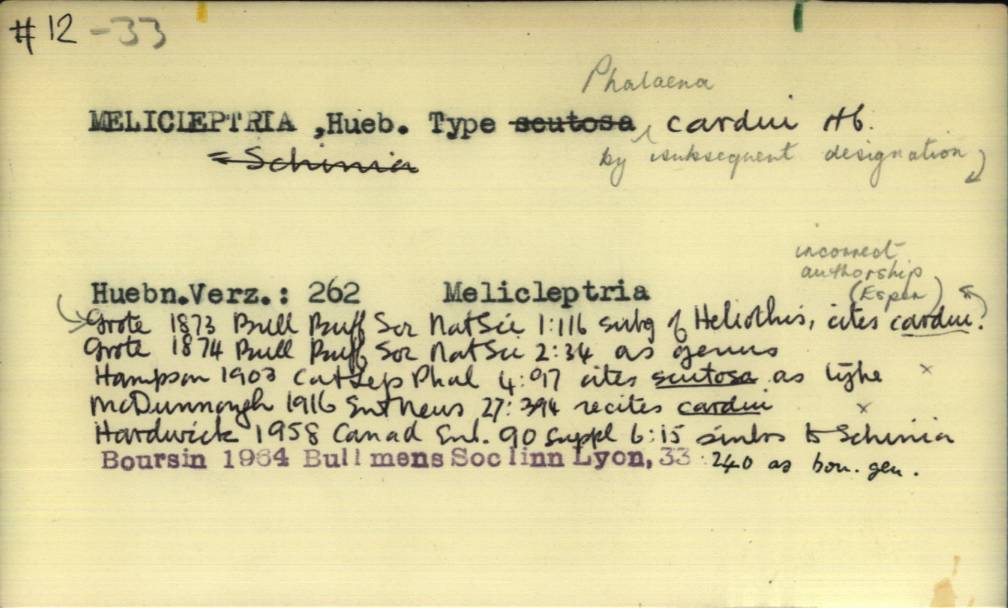 #12 -33
Phalaena
MELICLEPTRIA ,Hueb. Type scutosa cardui Hb.
= Schinia
by subsequent designation
incorrect
authorship
(Esper)
Huebn.Verz.: 262 Melicleptria
Grote 1873 Bull Buff Soc NatSci 1:116 subg of Heliothis, cites cardui.
Grote 1874 Bull Buff Soc NatSci 2:34 as genus
Hampson 1903 Cat Lep Phal 4:97 cites scutosa as type x
McDunnough 1916 Ent News 27:394 recites cardui x
Hardwick 1958 Canad Ent. 90 Suppl 6:15 sinks to Schinia
Boursin 1964 Bull mens Soc linn Lyon, 33 : 240 as bon. gen.